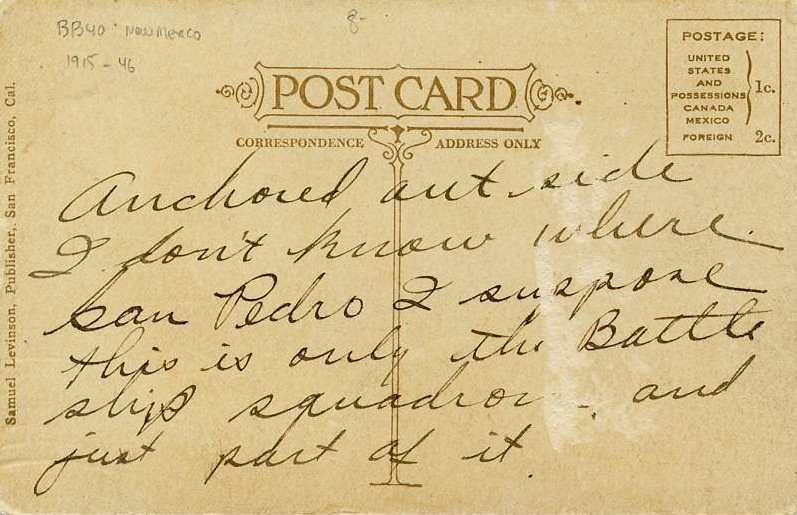 BB40 New Mexico
8-
1915-46
POST CARD
CORRESPONDENCE
ADDRESS ONLY
POSTAGE:
UNITED
STATES
AND
POSSESSIONS
CANADA
MEXICO
1c.
FOREIGN 2c.
Samuel Levinson, Publisher, San Francisco, Cal.
Anchored out side
I don't know where.
San Pedro I suppose
this is only the Battle
ships squadron - and
just part of it.